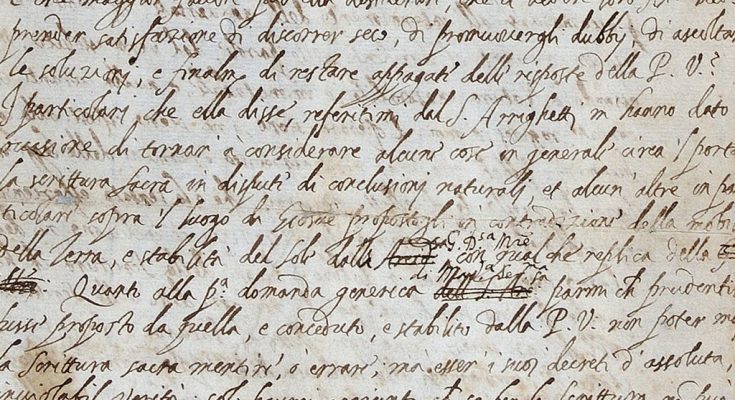 e che maggior favore
prender satisfazione di discorrer seco, di promuovergli dubbj, di ascoltar
le soluzioni, e finalm.e di restare appagati delle risposte della P. V.?
I particolari che ella disse, referitimi dal S. Arrighetti m'hanno dato
occasione di tornare à considerare alcune cose in generale circa 'l porta
la scrittura sacra in dispute di conclusioni naturali, et alcun'altre in par
ticolare sopra 'l luogo di Giosuè propostogli in contradizione della mobil
della Terra, e stabilità del Sole dalla G. D.sa M.re con qualche replica della
di Mad.a Ser.ma
Quanto alla p.a domanda generica parmi ch prudentis
fusse proposto da quella, e conceduto, e stabilito dalla P. V. non poter mai
la scrittura sacra mentire, ò errare, ma esser'i suoi decreti d'assoluta,
inviolabil verità. Solo haurei aggiunto, ch se bene la Scrittura non può